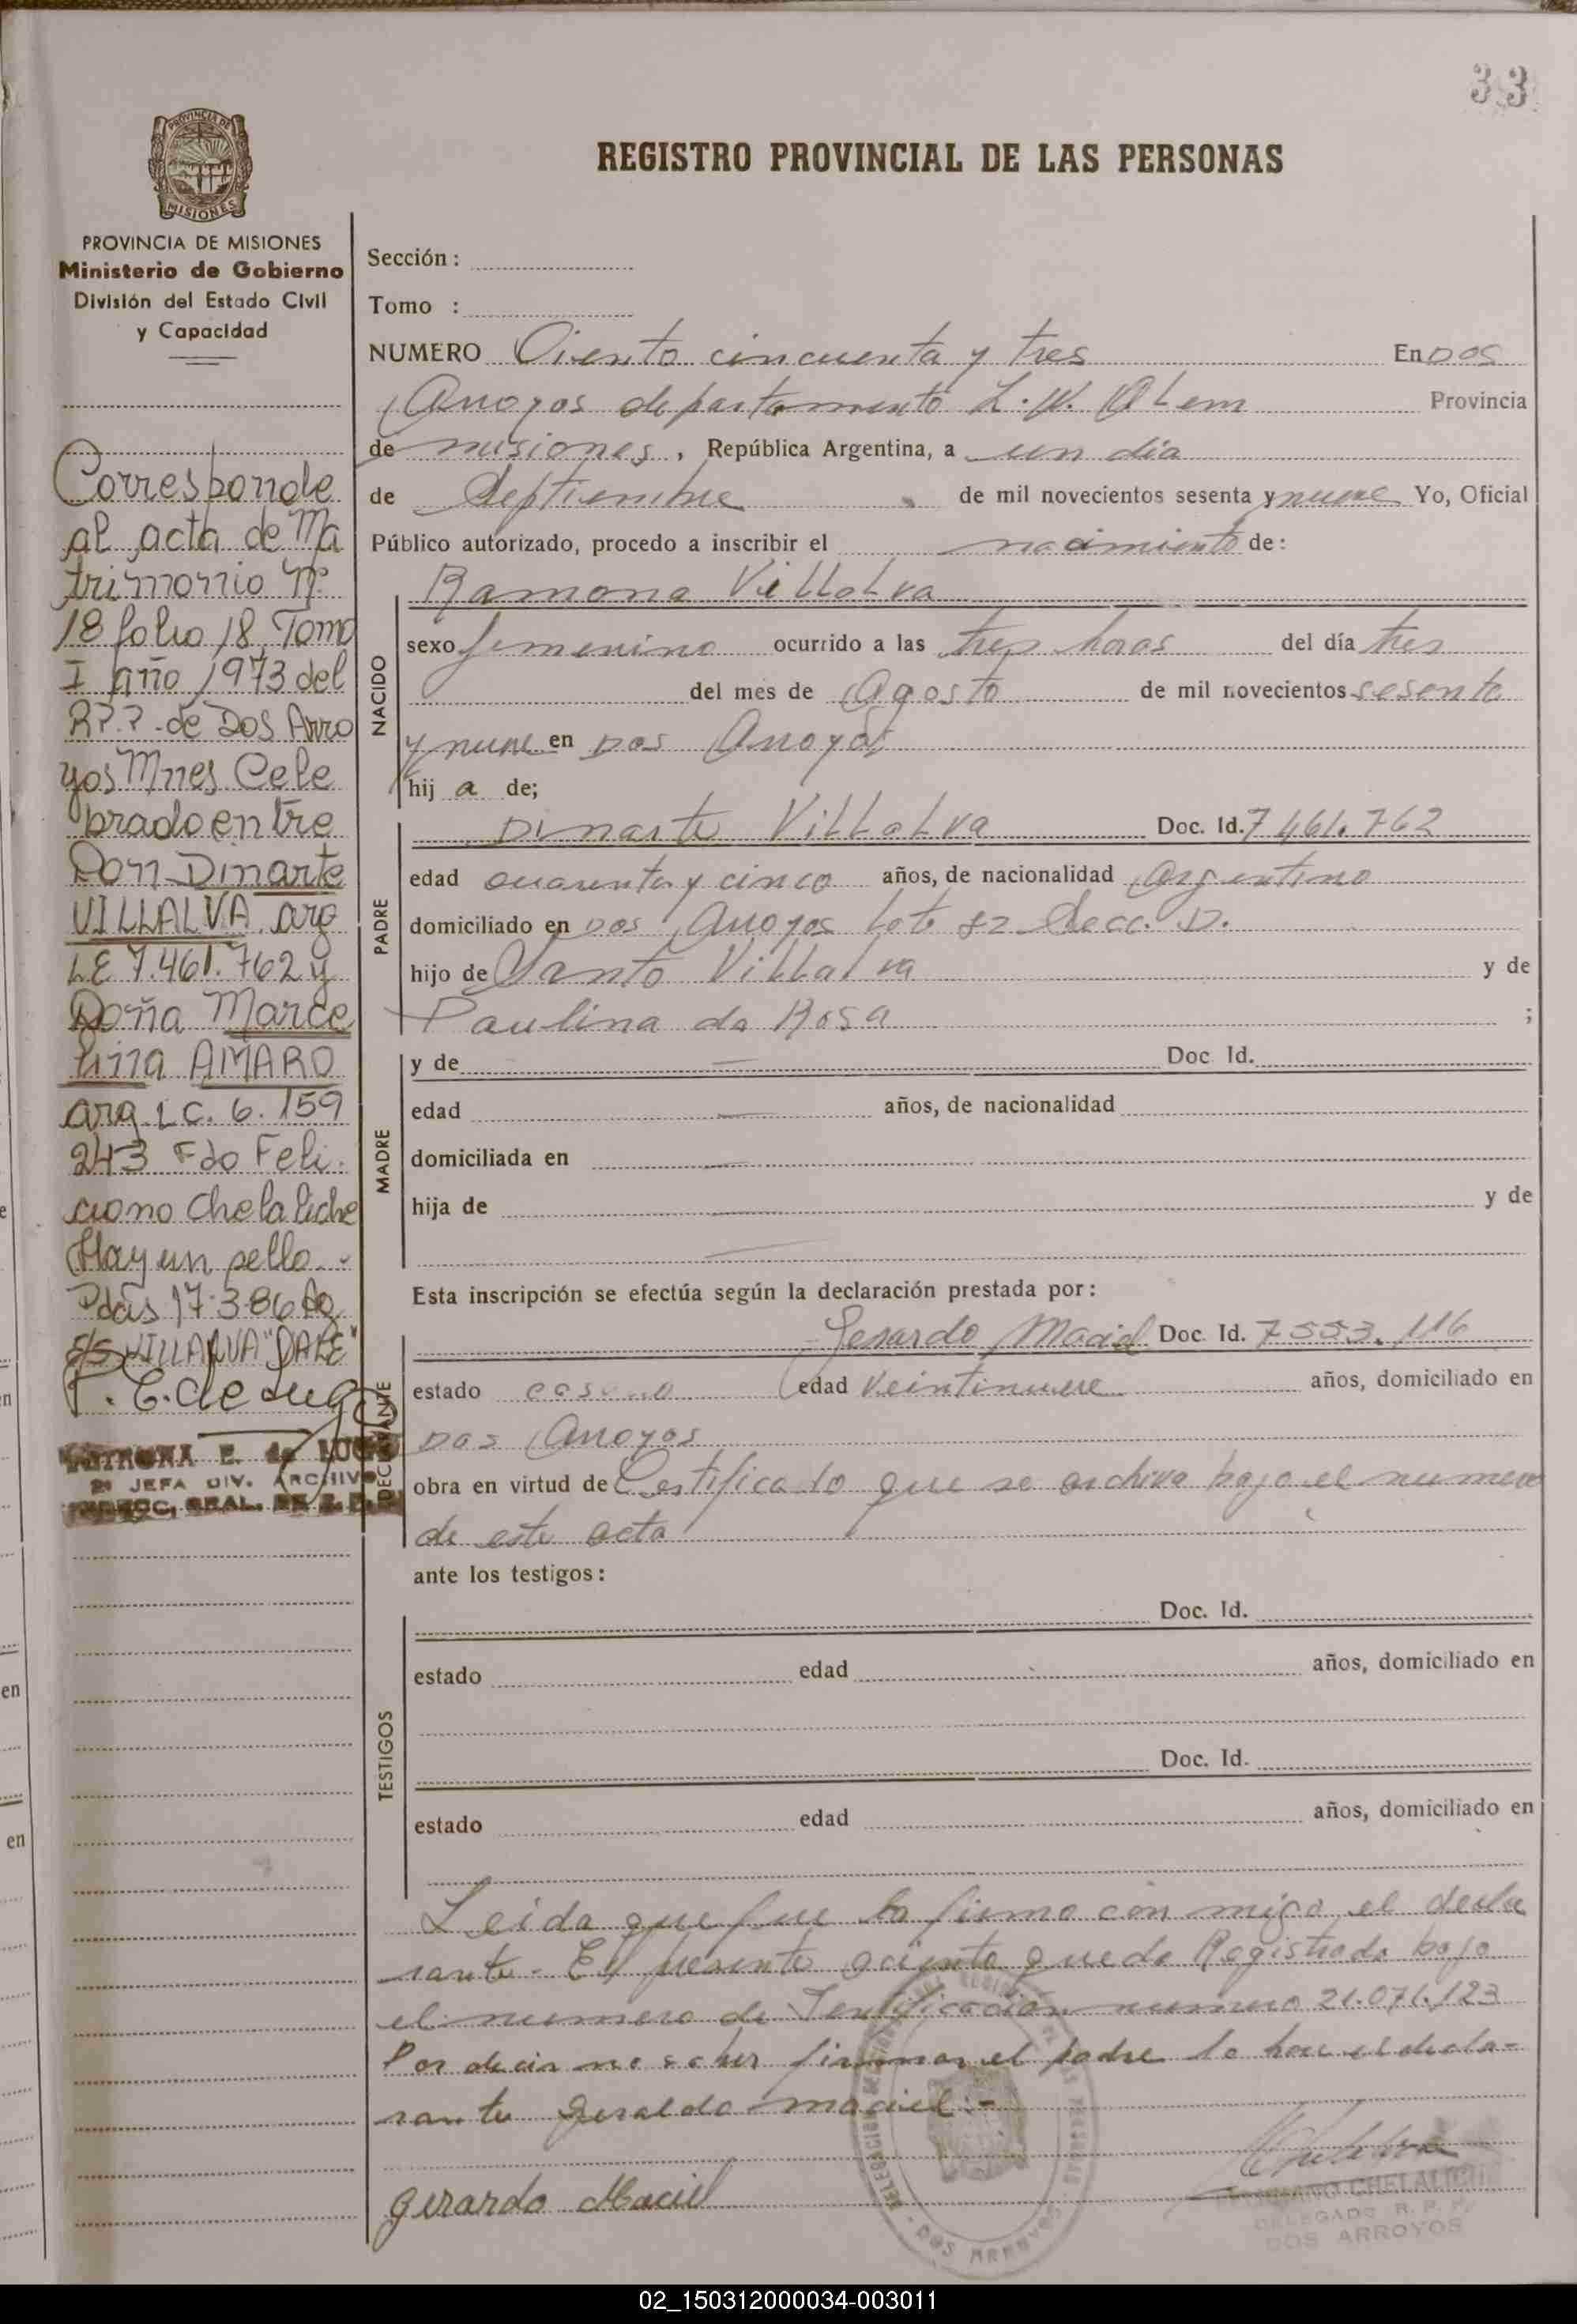 33
PROVINCIA DE
MISIONES
PROVINCIA DE MISIONES
Ministerio de Gobierno
División del Estado Civil
y Capacidad
Corresponde
al acta de Ma
trimonio Nº
18 folio 18 Tomo
I año 1973 del
R.P.P. de Dos Arro
yos Mnes Cele
brado entre
Don Dinarte
VILLALVA arg
L.E 7.461.762 y
Doña Marce
lina AMARO
arg L.C. 6.159
243 Fdo Feli
ciano Chelaliche
Hay un sello.-
Pdas 17-3-86
VILLALVA "VALE"
JEFA DIV. ARCHIVO
REGISTRO PROVINCIAL DE LAS PERSONAS
Sección:
Tomo :
NUMERO Ciento cincuenta y tres En Dos
Arroyos departamento L.N. Alem Provincia
de misiones, República Argentina, a un dia
de Septiembre de mil novecientos sesenta y nueve Yo, Oficial
Público autorizado, procedo a inscribir el nacimiento de:
Ramona Villalva
NACIDO
sexo femenino ocurrido a las tres horas del día tres
del mes de Agosto de mil novecientos sesenta
y nueve en Dos Arroyos
hij a de;
PADRE
Dinarte Villalva Doc. Id. 7461.762
edad cuarenta y cinco años, de nacionalidad Argentino
domiciliado en Dos Arroyos Lote 82 Secc. D.
hijo de Santo Villalva y de
Paulina da Rosa ;
MADRE
y de — Doc Id.
edad — años, de nacionalidad
domiciliada en —
hija de — y de
—
Esta inscripción se efectúa según la declaración prestada por:
DECLARANTE
Gerardo Maciel Doc. Id. 7553.116
estado casado edad veintinueve años, domiciliado en
Dos Arroyos
obra en virtud de Certificado que se archiva bajo el numero
de este acta
ante los testigos:
TESTIGOS
Doc. Id.
estado edad años, domiciliado en
Doc. Id.
estado edad años, domiciliado en
Leida que fue la firma con migo el decla
rante - El presente aciento queda Registrado bajo
el numero de Ientificacion numero 21.071.123
Por decir no saber firmar el padre lo hace el decla-
rante Geraldo maciel.-
Gerardo Maciel
CHELALICHE
DELEGADO R. P. P.
DOS ARROYOS
02_150312000034-003011